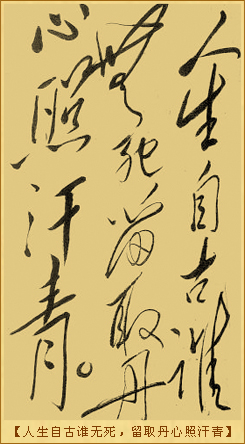 人生自古谁
無死留取丹
心照汗青。
【人生自古谁无死，留取丹心照汗青】